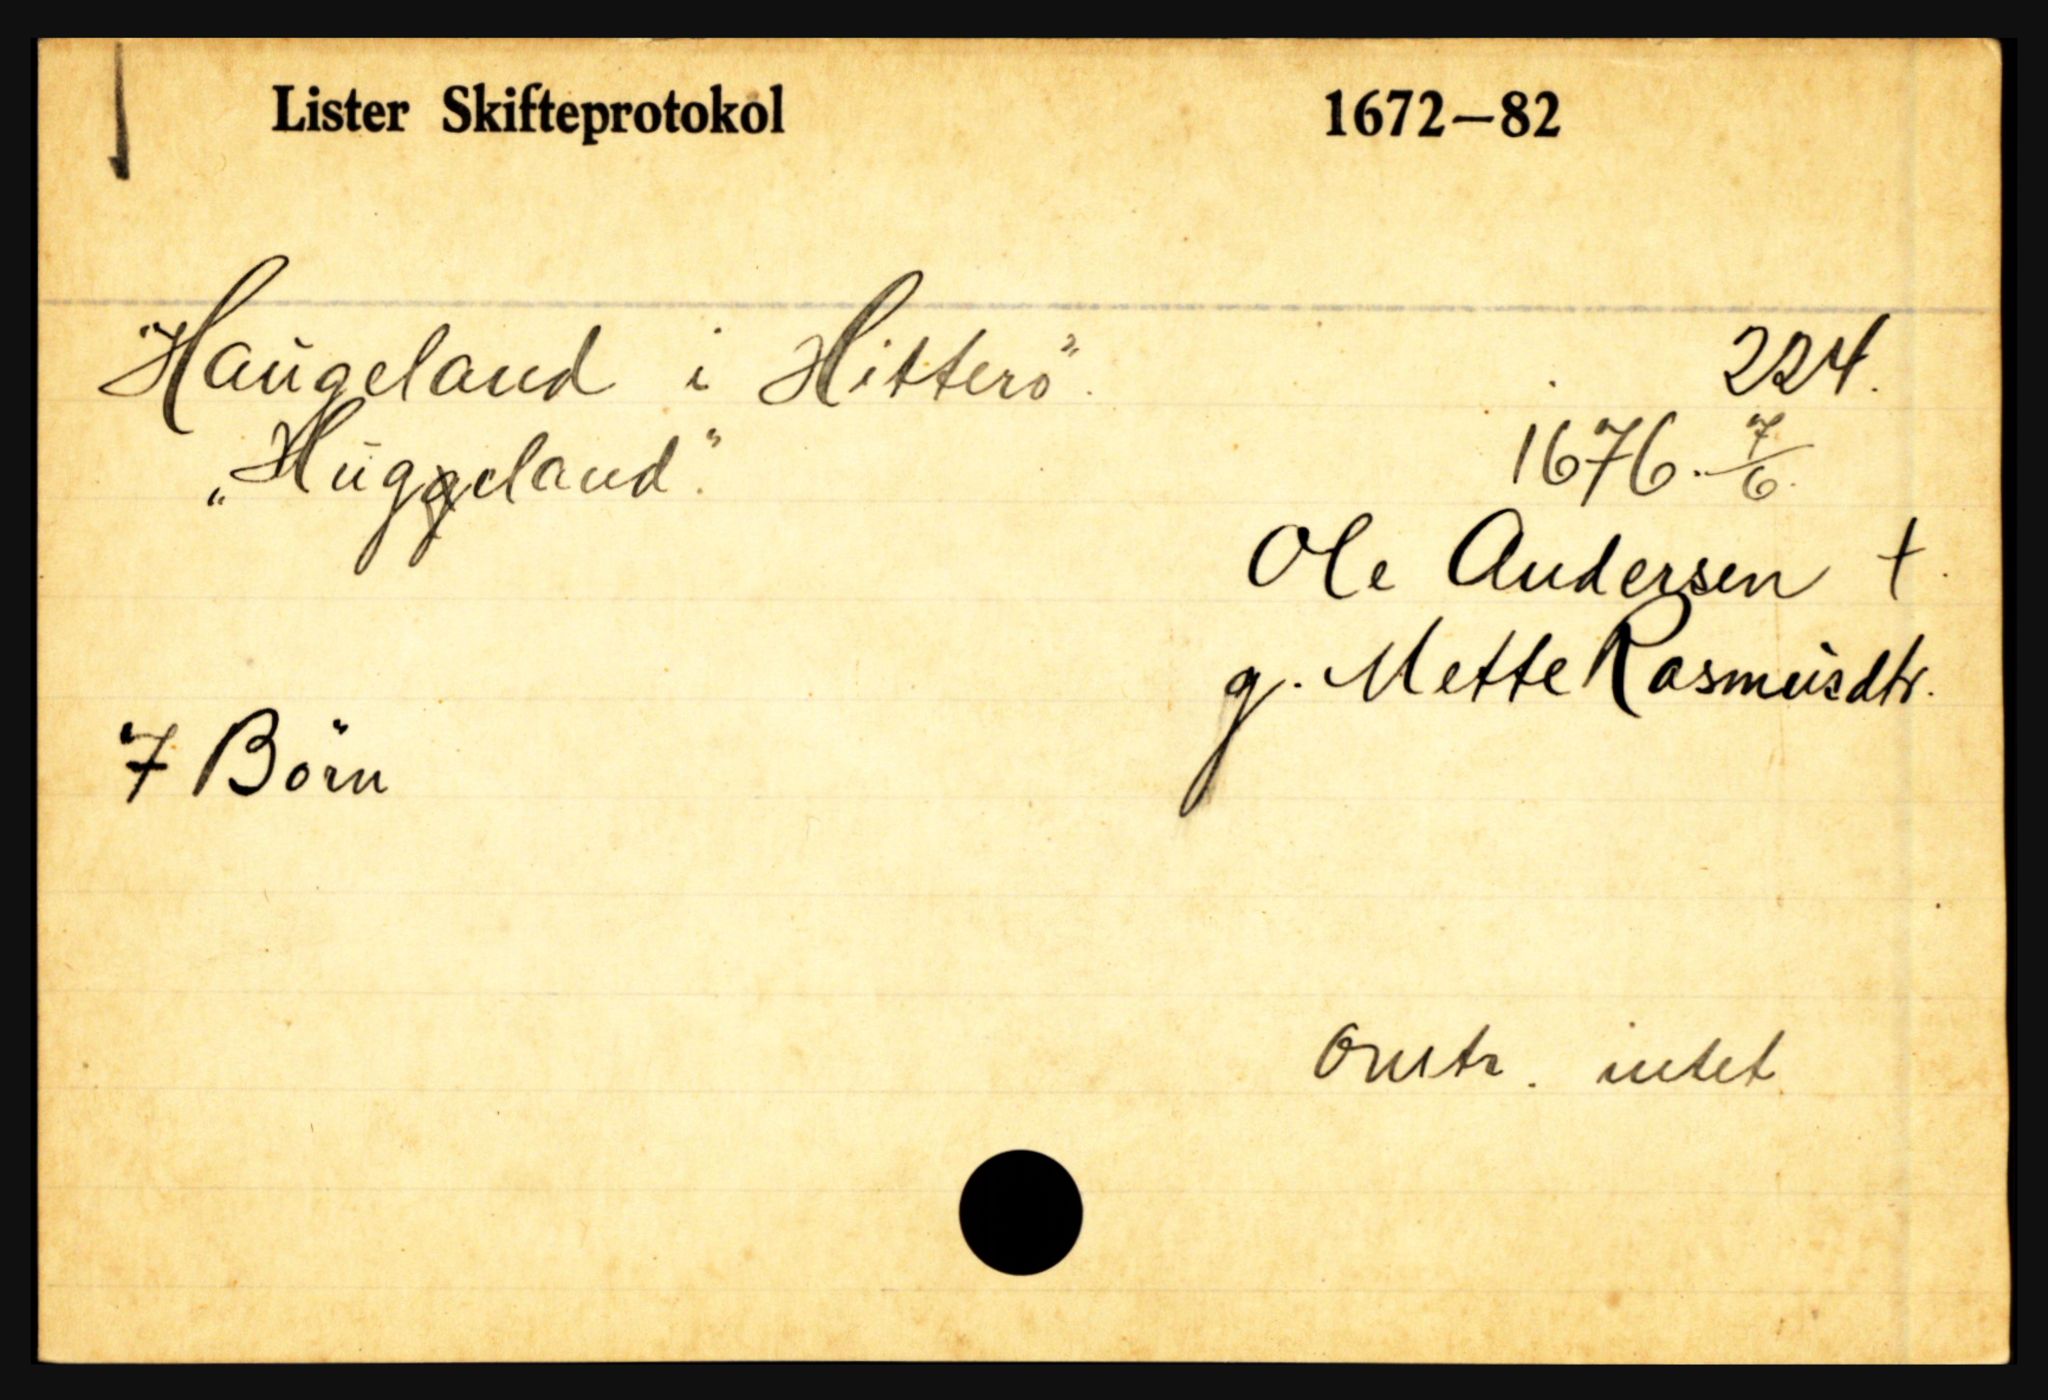 Lister Skifteprotokol 1672—82
Haugeland i Hitterö". 224.
„Huggeland". 1676. 7/6.
Ole Andersen †.
g. Mette Rasmusdtr.
7 Börn
intet